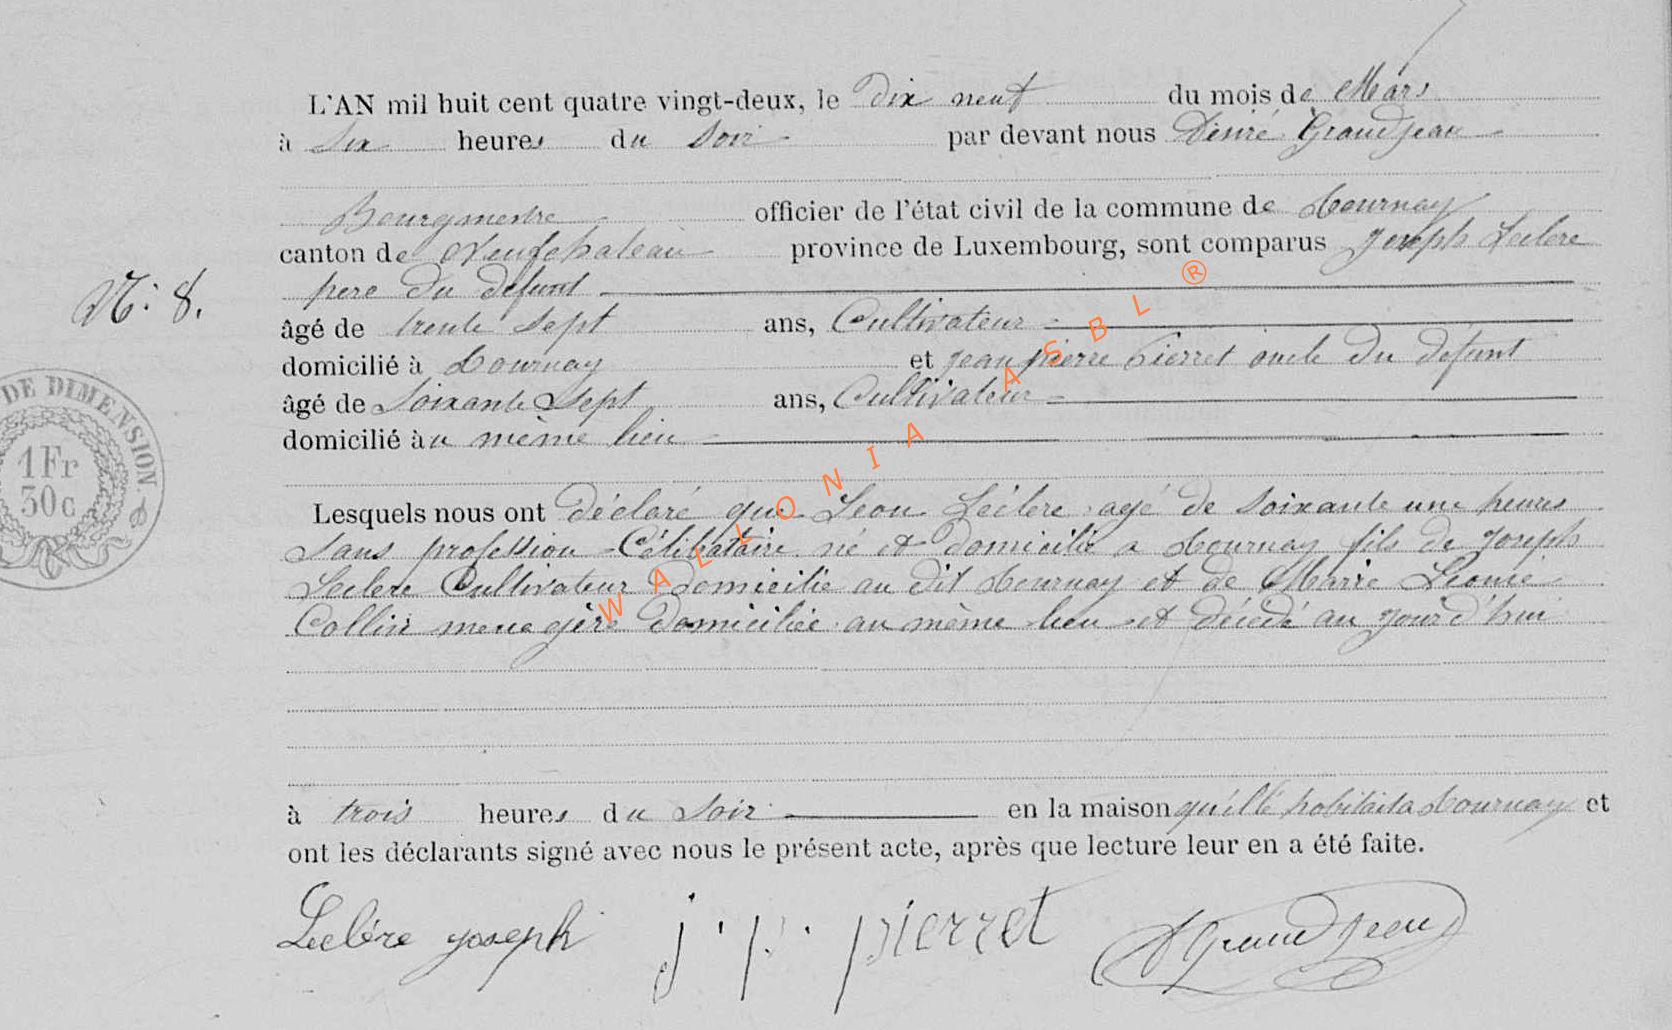 L'AN mil huit cent quatre vingt-deux, le Dix neuf du mois de Mars
à Six heures du Soir par devant nous Désiré Grandjean
Bourgmestre officier de l'état civil de la commune de Tournay
canton de Neufchateau province de Luxembourg, sont comparus Joseph Leclere
pere du defunt
N: 8.
âgé de trente sept ans, Cultivateur
domicilié à Tournay et jean pierre Pierret oncle du défunt
âgé de Soixante Sept ans, Cultivateur
domicilié au même lieu
DE DIMENSION.
1 Fr
30 c
Lesquels nous ont déclaré que Léon Léclere agé de soixante une heures
Sans profession Célibataire né et domicilié a Tournay fils de Joseph
Leclere Cultivateur Domicilié au dit Tournay et de Marie Léonie
Collin menagère Domiciliée au même lieu et décédé au jourd'hui
à trois heures du Soir en la maison qu'ill habitait a Tournay et
ont les déclarants signé avec nous le présent acte, après que lecture leur en a été faite.
Leclère joseph j. p. pierret D Grandjean
WALLONIA ASBL ®